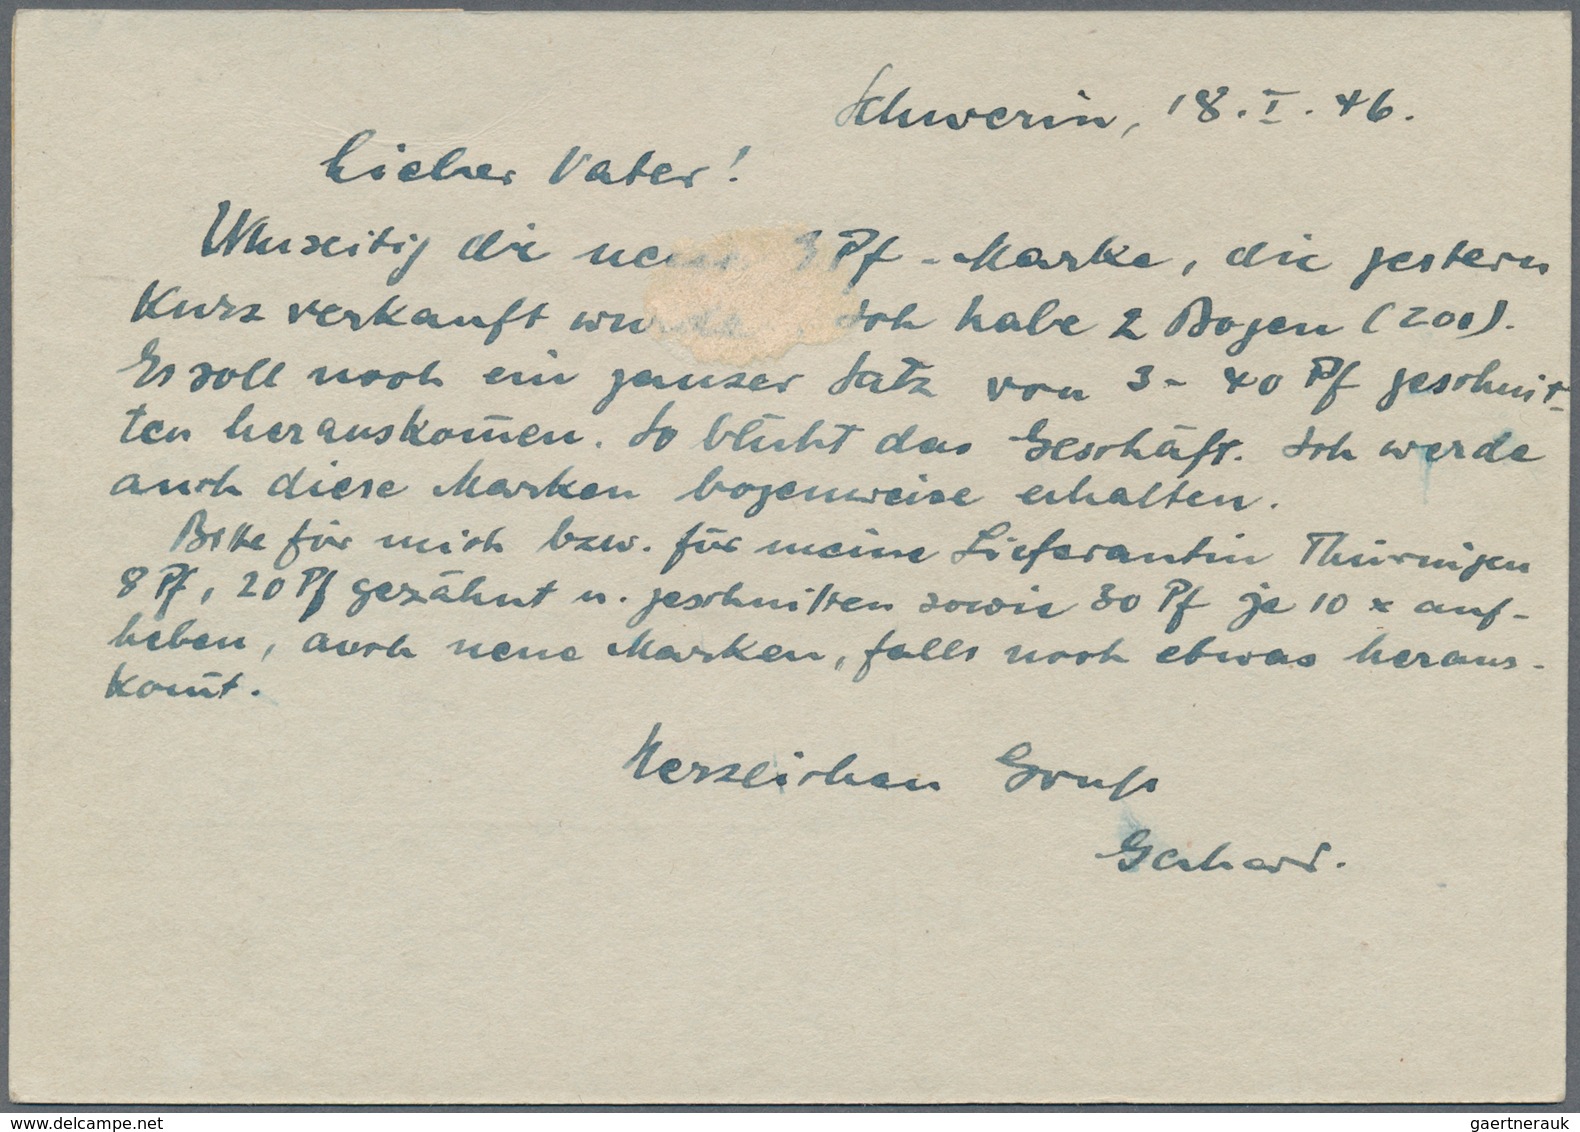 Schwerin, 18. I. 46.
Lieber Vater!
Umseitig die neue 3 Pf - Marke, die gestern
kurz verkauft wurde. Ich habe 2 Bogen (200).
Es soll noch ein ganzer Satz von 3 - 40 Pf geschnit-
ten herauskom̅en. So blüht das Geschäft. Ich werde
auch diese Marken bogenweise erhalten.
Bitte für mich bzw. für meine Lieferantin Thüringen
8 Pf, 20 Pf gezähnt u. geschnitten sowie 30 Pf je 10 x auf-
heben, auch neue Marken, falls noch etwas heraus-
kom̅t.
Herzlichen Gruß
Gerhard.
www.delcampe.net
gaertnerauk